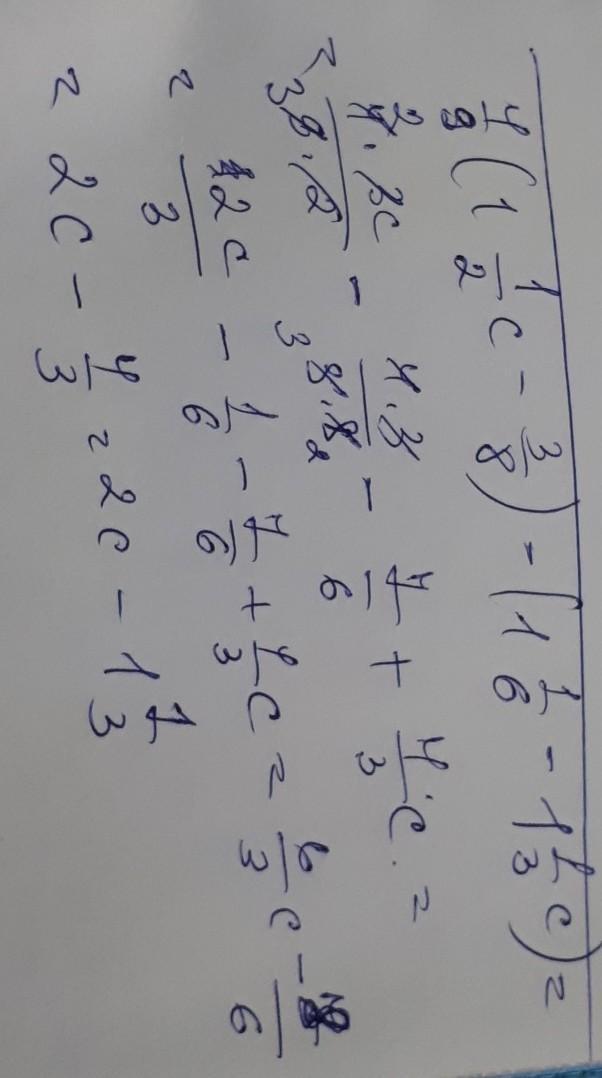 4/9 (1 1/2 c - 3/8) - (1 1/6 - 1 1/3 c) =
= 4·3c/9·2 - 4·3/9·8 - 7/6 + 4/3 c =
= 2c/3 - 1/6 - 7/6 + 4/3 c = 6/3 c - /6
= 2c - 4/3 = 2c - 1 1/3